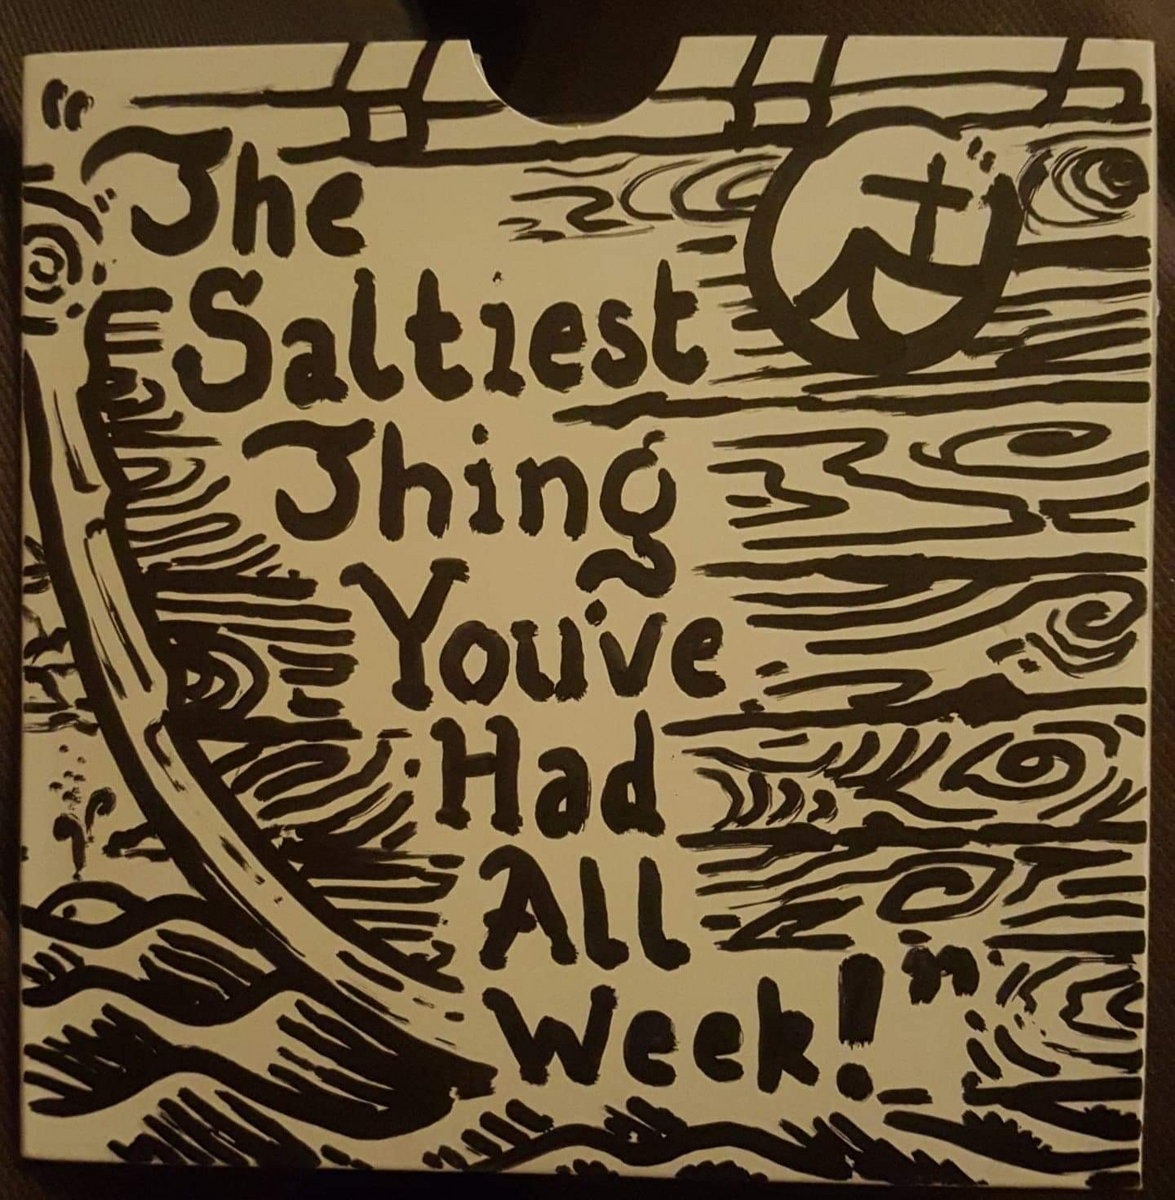 "The
Saltiest
Thing
You've
Had
All
Week!"